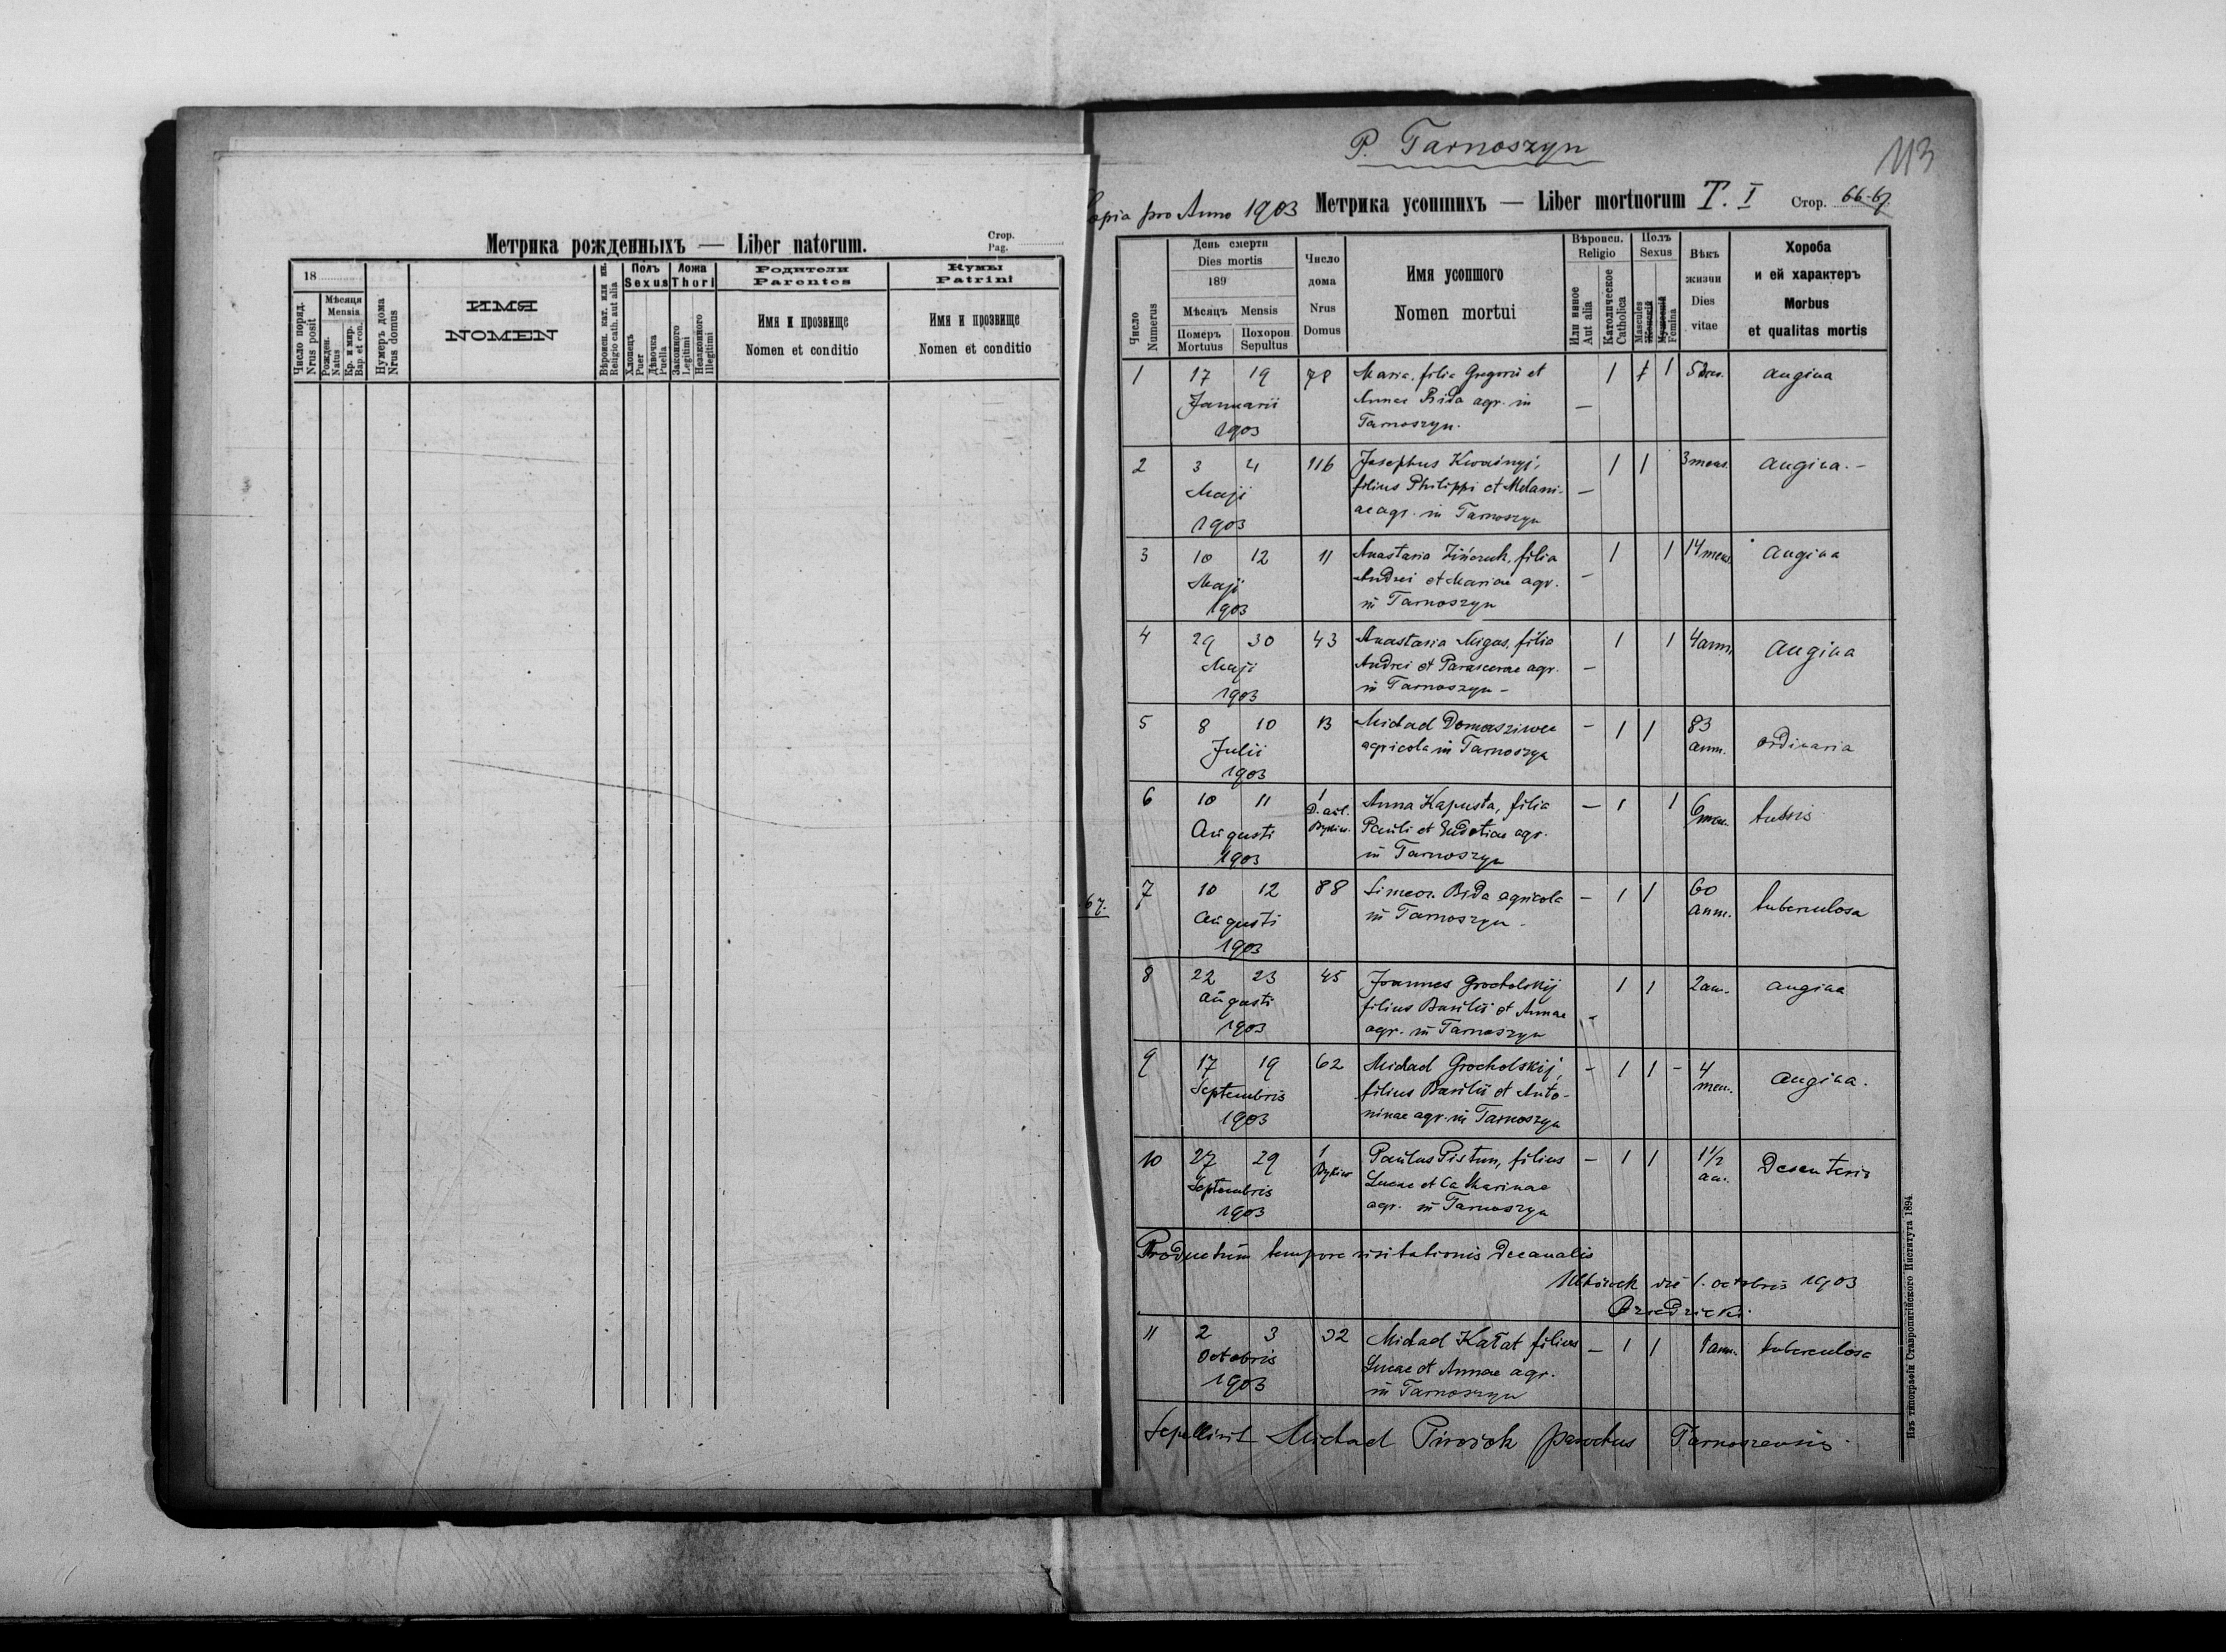 Метрика рожденныхъ — Liber natorum.
Стор.
Pag.
18
Число поряд.
Nrus posit
Мѣсяця
Mensis
Рожден.
Natus
Кр. и мvр.
Bap. et con.
Нумеръ дома
Nrus domus
ИМЯ
NOMEN
Вѣроисп. кат. или ин.
Religio cath. aut alia
Полъ
Sexus
Хлопецъ
Puer
Дѣвочка
Puella
Ложа
Thori
Законного
Legitimi
Незаконного
Illegitimi
Родители
Parentes
Имя и прозвище
Nomen et conditio
Кумы
Patrini
Имя и прозвище
Nomen et conditio
P. Tarnoszyn
113
Copia pro Anno 1903 Метрика усопшихъ — Liber mortuorum T. I Стор. 66-67
Число
Numerus
День смерти
Dies mortis
189
Мѣсяцъ Mensis
Померъ
Mortuus
Похорон
Sepultus
Число
дома
Nrus
Domus
Имя усопшого
Nomen mortui
Вѣроисп.
Religio
Или инное
Aut alia
Католическое
Catholica
Полъ
Sexus
Mascules
Женскій
Мужескій
Femina
Вѣкъ
жизни
Dies
vitae
Хороба
и ей характеръ
Morbus
et qualitas mortis
1 17 19 78 Maria, filia Gregorii et 1 1 1 angina
Januarii Annae Bida agr. in —
1903 Tarnoszyn.
2 3 4 116 Josephus Kwaśnyj, 1 1 3 mens. angina. -
Maji filius Philippi et Melani- —
1903 ae agr. in Tarnoszyn
3 10 12 11 Anastasia Zińczuk, filia 1 1 14 mens. angina
Maji Andrei et Mariae agr. —
1903 in Tarnoszyn
4 29 30 43 Anastasia Migas, filia 1 1 4 ann. angina
Maji Andrei et Parascevae agr. —
1903 in Tarnoszyn -
5 8 10 13 Michael Domasziwec — 1 1 83
Julii agricola in Tarnoszyn ann. ordinaria
1903
6 10 11 1 Anna Kapusta, filia — 1 1 6
Augusti Pauli et Eudotiae agr. men. tussis
1903 in Tarnoszyn
67.
7 10 12 88 Simeon Bida agricola — 1 1 60
Augusti in Tarnoszyn. ann. tuberculosa
1903
8 22 23 45 Joannes Grocholskij 1 1 2 ann. angina
augusti filius Basilii et Annae -
1903 agr. in Tarnoszyn
9 17 19 62 Michael Grocholskij, — 1 1 - 4
Septembris filius Basilii et Anto- men. angina.
1903 ninae agr. in Tarnoszyn
10 27 29 1 Paulus Pistun, filius — 1 1 1 1/2
Septembris Lucae et Catharinae an.
1903 agr. in Tarnoszyn
Productum tempore visitationis decanalis
die 1. octobris 1903
11 2 3 32 Michael Kałat filius — 1 1 ann. tuberculosa
Octobris Lucae et Annae agr.
1903 in Tarnoszyn
Sepelivit Michael parochus
Изъ типографіи Ставропигійского Института 1894.